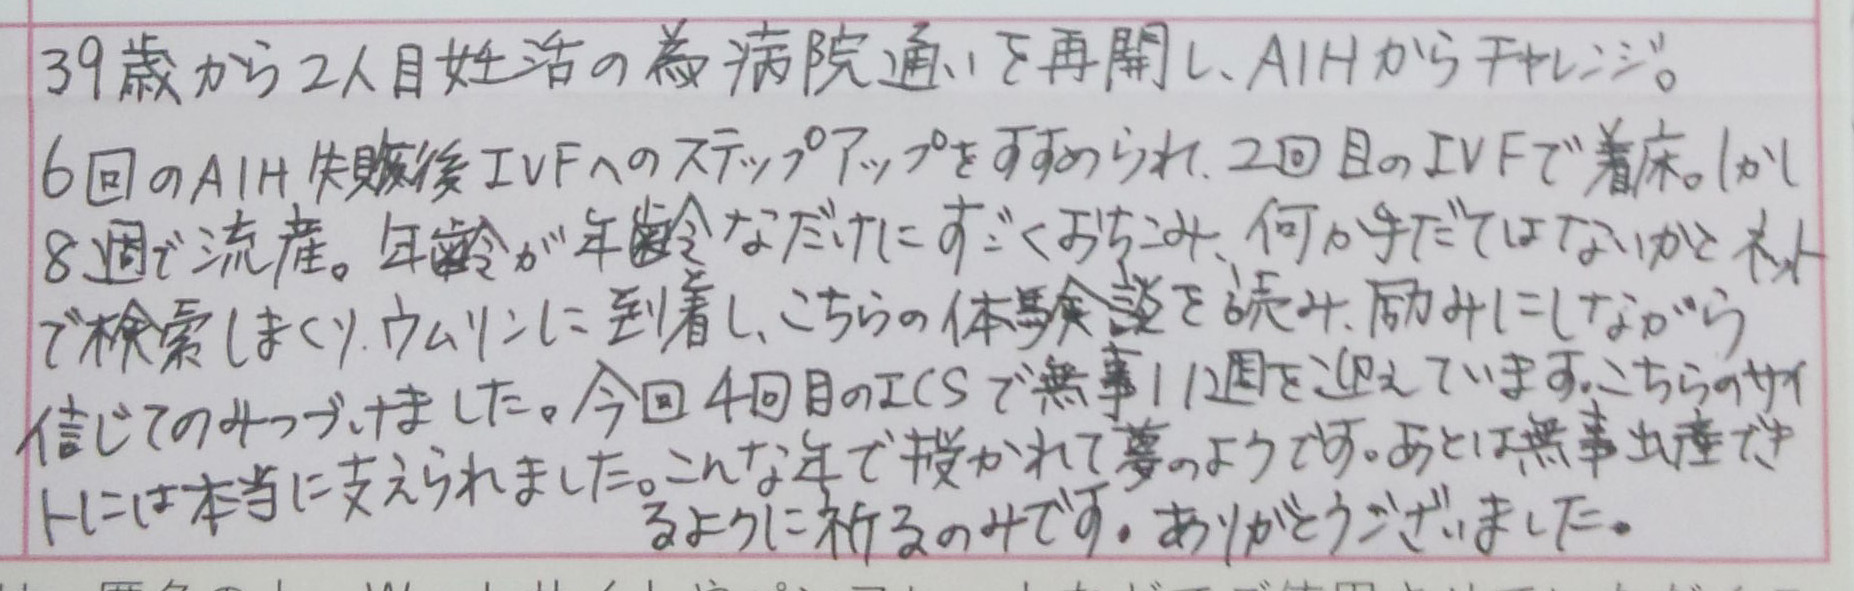 39歳から2人目妊活の為病院通いを再開し、AIHからチャレンジ。
6回のAIH失敗後IVFへのステップアップをすすめられ、2回目のIVFで着床。しかし
8週で流産。年齢が年齢なだけにすごくおちこみ、何か手だてはないかとネット
で検索しまくり、ウムリンに到着し、こちらの体験談を読み、励みにしながら
信じてのみつづけました。今回4回目のICSで無事12週を迎えています。こちらのサイ
トには本当に支えられました。こんな年で授かれて夢のようです。あとは無事出産でき
るように祈るのみです。ありがとうございました。